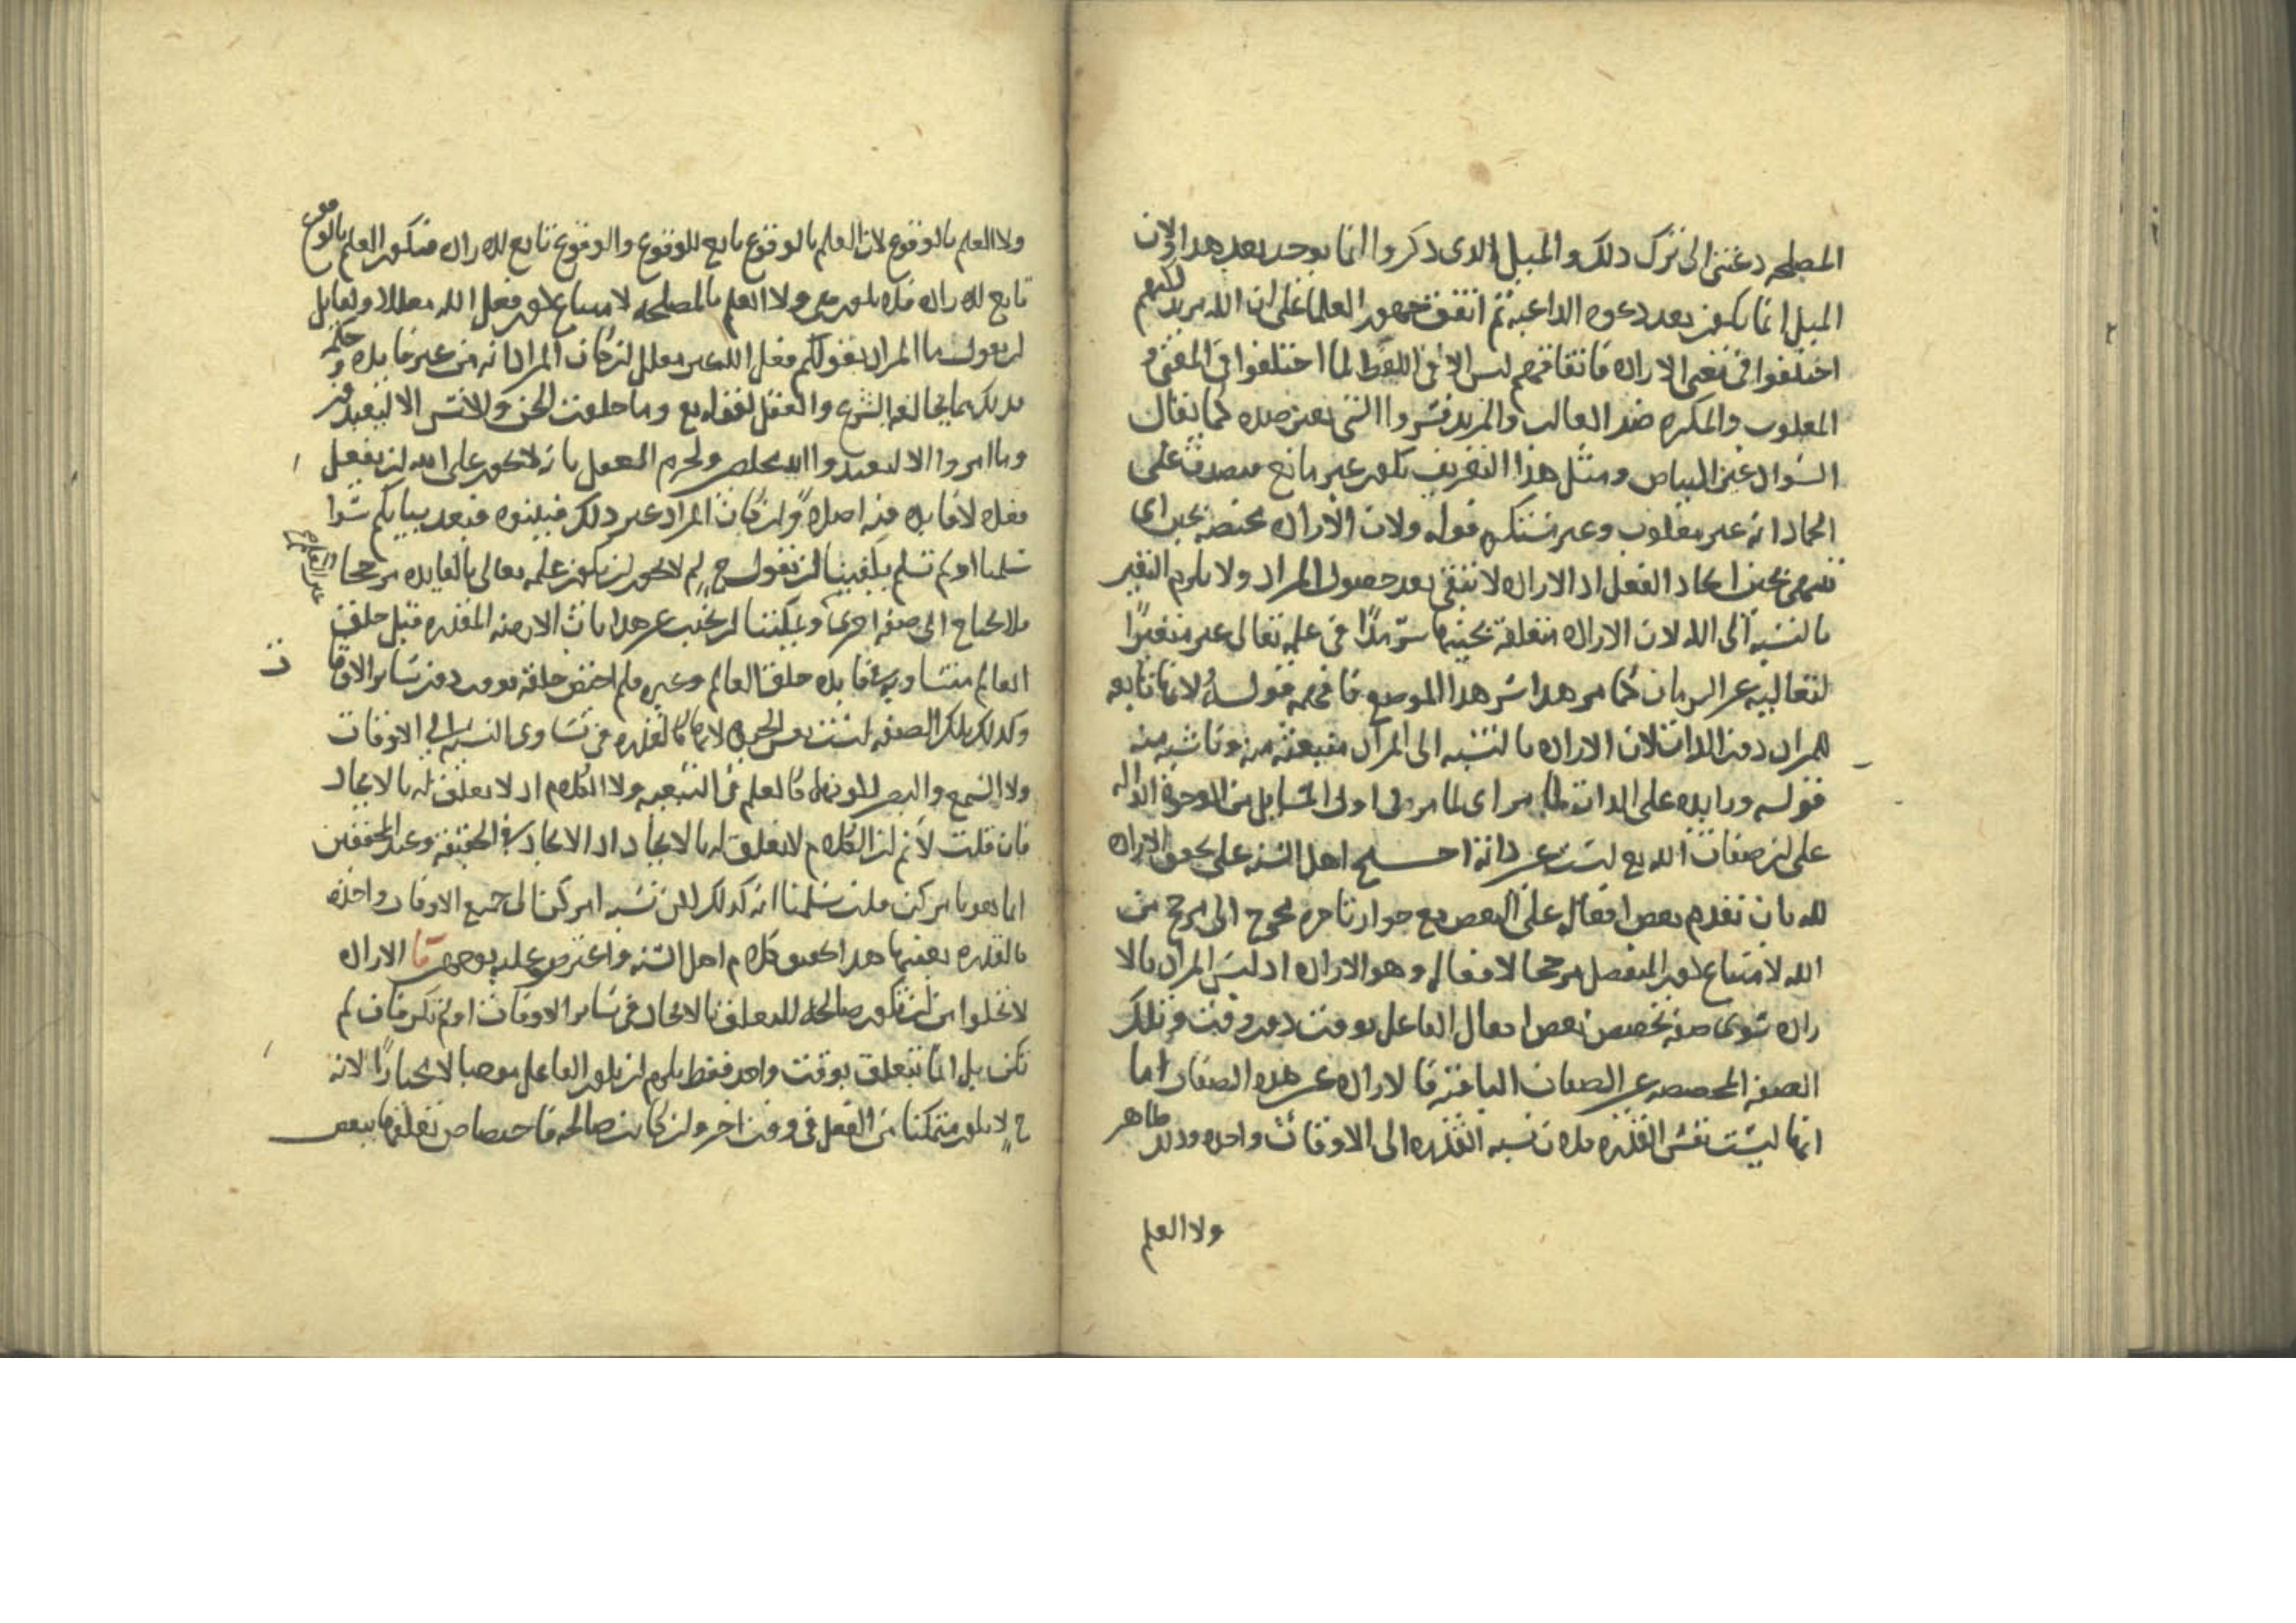 المصلحه دعتنى الى ترك ذلك والميل الذى ذكروا انما يوجد بعد هذا ولان
الميل انما يكون بعد دعوه الداعية ثم اتفق جمهور العلما على ان الله مريد لكنهم
اختلفوا فى معنى الاراده فاتفاقهم ليس الا فى اللفظ لما اختلفوا فى المعنى
المغلوب والمكره ضد الغالب والمريد فسروا الشى بغير ضده كما يقال
السواد غير البياض ومثل هذا التعريف يكون غير مانع فيصدق على
الجماد انه غير مغلوب وغير مستكره قوله ولان الاراده مختصه بحين اى
بحين ايجاد الفعل اذ الاراده لا تبقى بعد حصول المراد ولا يلزم التغير
بالنسبة الى الله لان الاراده متعلقة بحينها سرمدا فى علمه تعالى غير متغيرا
لتعاليه عن الزمان كما مر هذا شرح هذا الموضع فافهمه قوله لانها تابعه
للمراد دون الذات لان الاراده بالنسبه الى المراد منبعثه منه وناشيه منه
قوله وزايده على الذات لما مر اى لما مر فى اول المسايل من الوجوه الداله
على ان صفات الله تع ليست عين ذاته احتج اهل السنه على تحقق الاراده
لله بان تقدم بعض افعاله على البعض مع جواز تاخره يحوج الى مرجح من
الله لامتناع كون المنفصل مرجحا لافعاله وهو الاراده اذ ليس المراد بالا
راده سوى صفه تخصص بعض افعال الفاعل بوقت دون وقت وتلك
الصفه المخصصه غير الصفات الباقية فالاراده غير هذه الصفات اما
انها ليست نفس القدره فلان نسبه القدره الى الاوقات واحده وذلك ظاهر
ولا العلم
ولا العلم بالوقوع لان العلم بالوقوع تابع للوقوع والوقوع تابع للاراده فيكون العلم بالوقوع
تابع للاراده فلا يكون هى ولا العلم بالمصلحه لامتناع كون فعل الله معللا ولقايل
ان يقول ما المراد بقولكم فعل الله غير معلل ان كان المراد انه من غير فايده وحكمه
يخالفه الشرع والعقل لقوله تع وما خلقت الجن والانس الا ليعبدون
وما امروا الا ليعبدوا الله مخلصين ولجزم العقل بانه لا يجوز على الله ان يفعل
فعلا لا فايده فيه اصلا وان كان المراد غير ذلك فبينوه فبعد بيانكم سوا
سلمنا او لم نسلم يكفينا ان نقول ح لم لا يجوز ان يكون علمه تعالى بالفايده مرجحا
فلا يحتاج الى صفه اخرى ويمكننا ان نجيب عن هذا بان الازمنه المقدره قبل خلق
العالم متساويه فى فايده خلق العالم وغيره فلم اختص خلقه بوقت دون ساير الاوقات
وكذلك تلك الصفه ليست نفس الحيوه لانها كالقدره فى تساوى النسبه الى الاوقات
ولا السمع والبصر لكونهما كالعلم فى التبعيه ولا الكلام اذ لا تعلق له بالايجاد
فان قلت لا نم ان الكلام لا تعلق له بالايجاد اذ الايجاد فى الحقيقه وعند المحققين
انما هو بامر كن قلت سلمنا انه كذلك لكن نسبه امر كن الى جميع الاوقات واحده
كالقدره بعينها هذا تحقيق كلام اهل السنه واعترض عليه بوجهين ا الاراده
لا تخلوا من ان تكون صالحه للتعلق بالايجاد فى ساير الاوقات او لم تكن فان لم
تكن بل انما تتعلق بوقت واحد فقط يلزم ان يكون الفاعل موجبا لا مختارا لانه
ح لا يكون متمكنا من الفعل فى وقت اخر وان كانت صالحه فاختصاص تعلقها ببعض